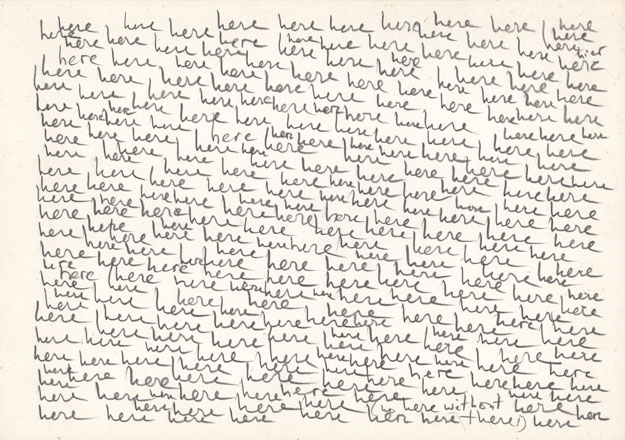 here here here here here here here here here
here here here here here here here here here here
here here here here here here here here here here
here here here here here here here here here here
here here here here here here here here here here
here here here here here here here here here here
here here here here here here here here here here
here here here here here here here here here here
here here here here here here here here here here
here here here here here here here here here here
here here here here here here here here here here
here here here here here here here here here here
here here here here here here here here here here
here here here here here here here here here here
here here here here here here here here here here
here here here here here here here here here here
here here here here here here here here here here
here here here here here here here here here here
here here here here here here here here here here
here here here here here here here here here here
here here here here here here here here here here
here here here here here here here here here here
here here here here here here here (no here without here here
here here here here here here here there!) here